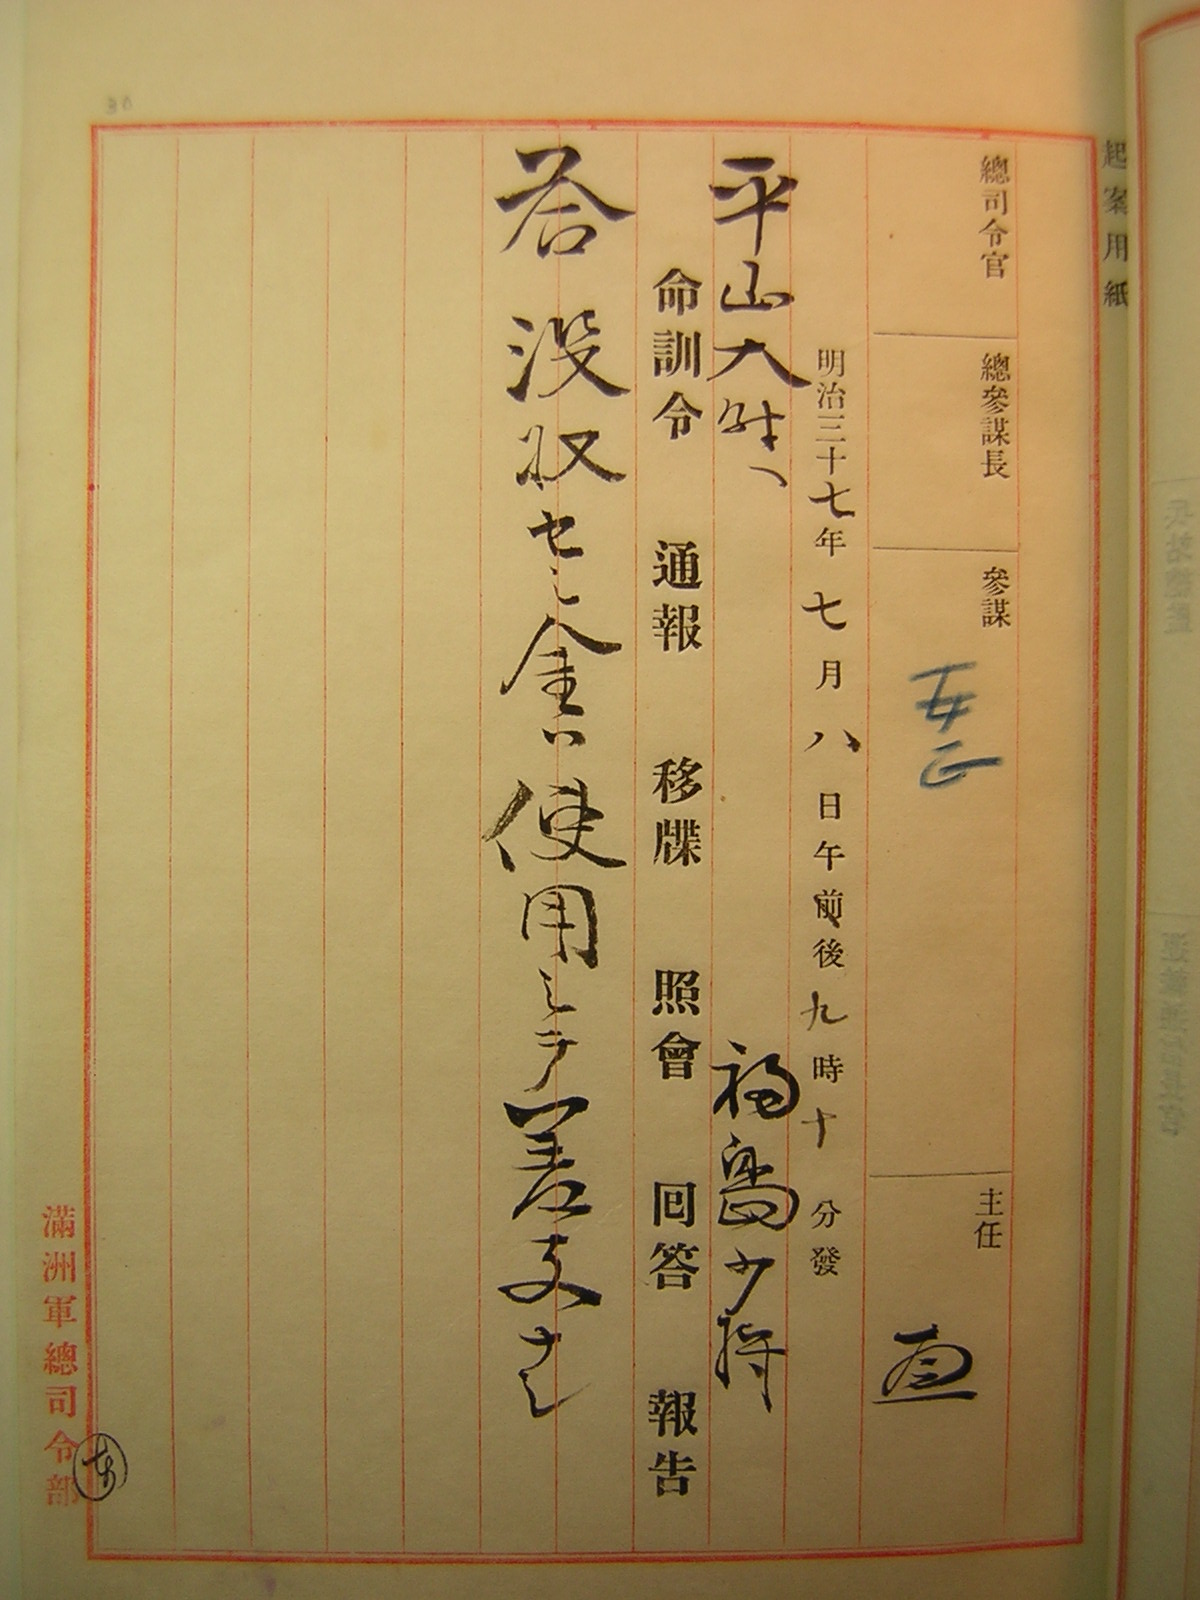 起案用紙
總司令官
總參謀長
參謀
主任
明治三十七年七月八日午前後九時十分發
平山大佐へ
福島少将
命訓令 通報 移牒 照會 回答 報告
答 没収セシ金ハ使用シテ差支ナシ
滿洲軍總司令部